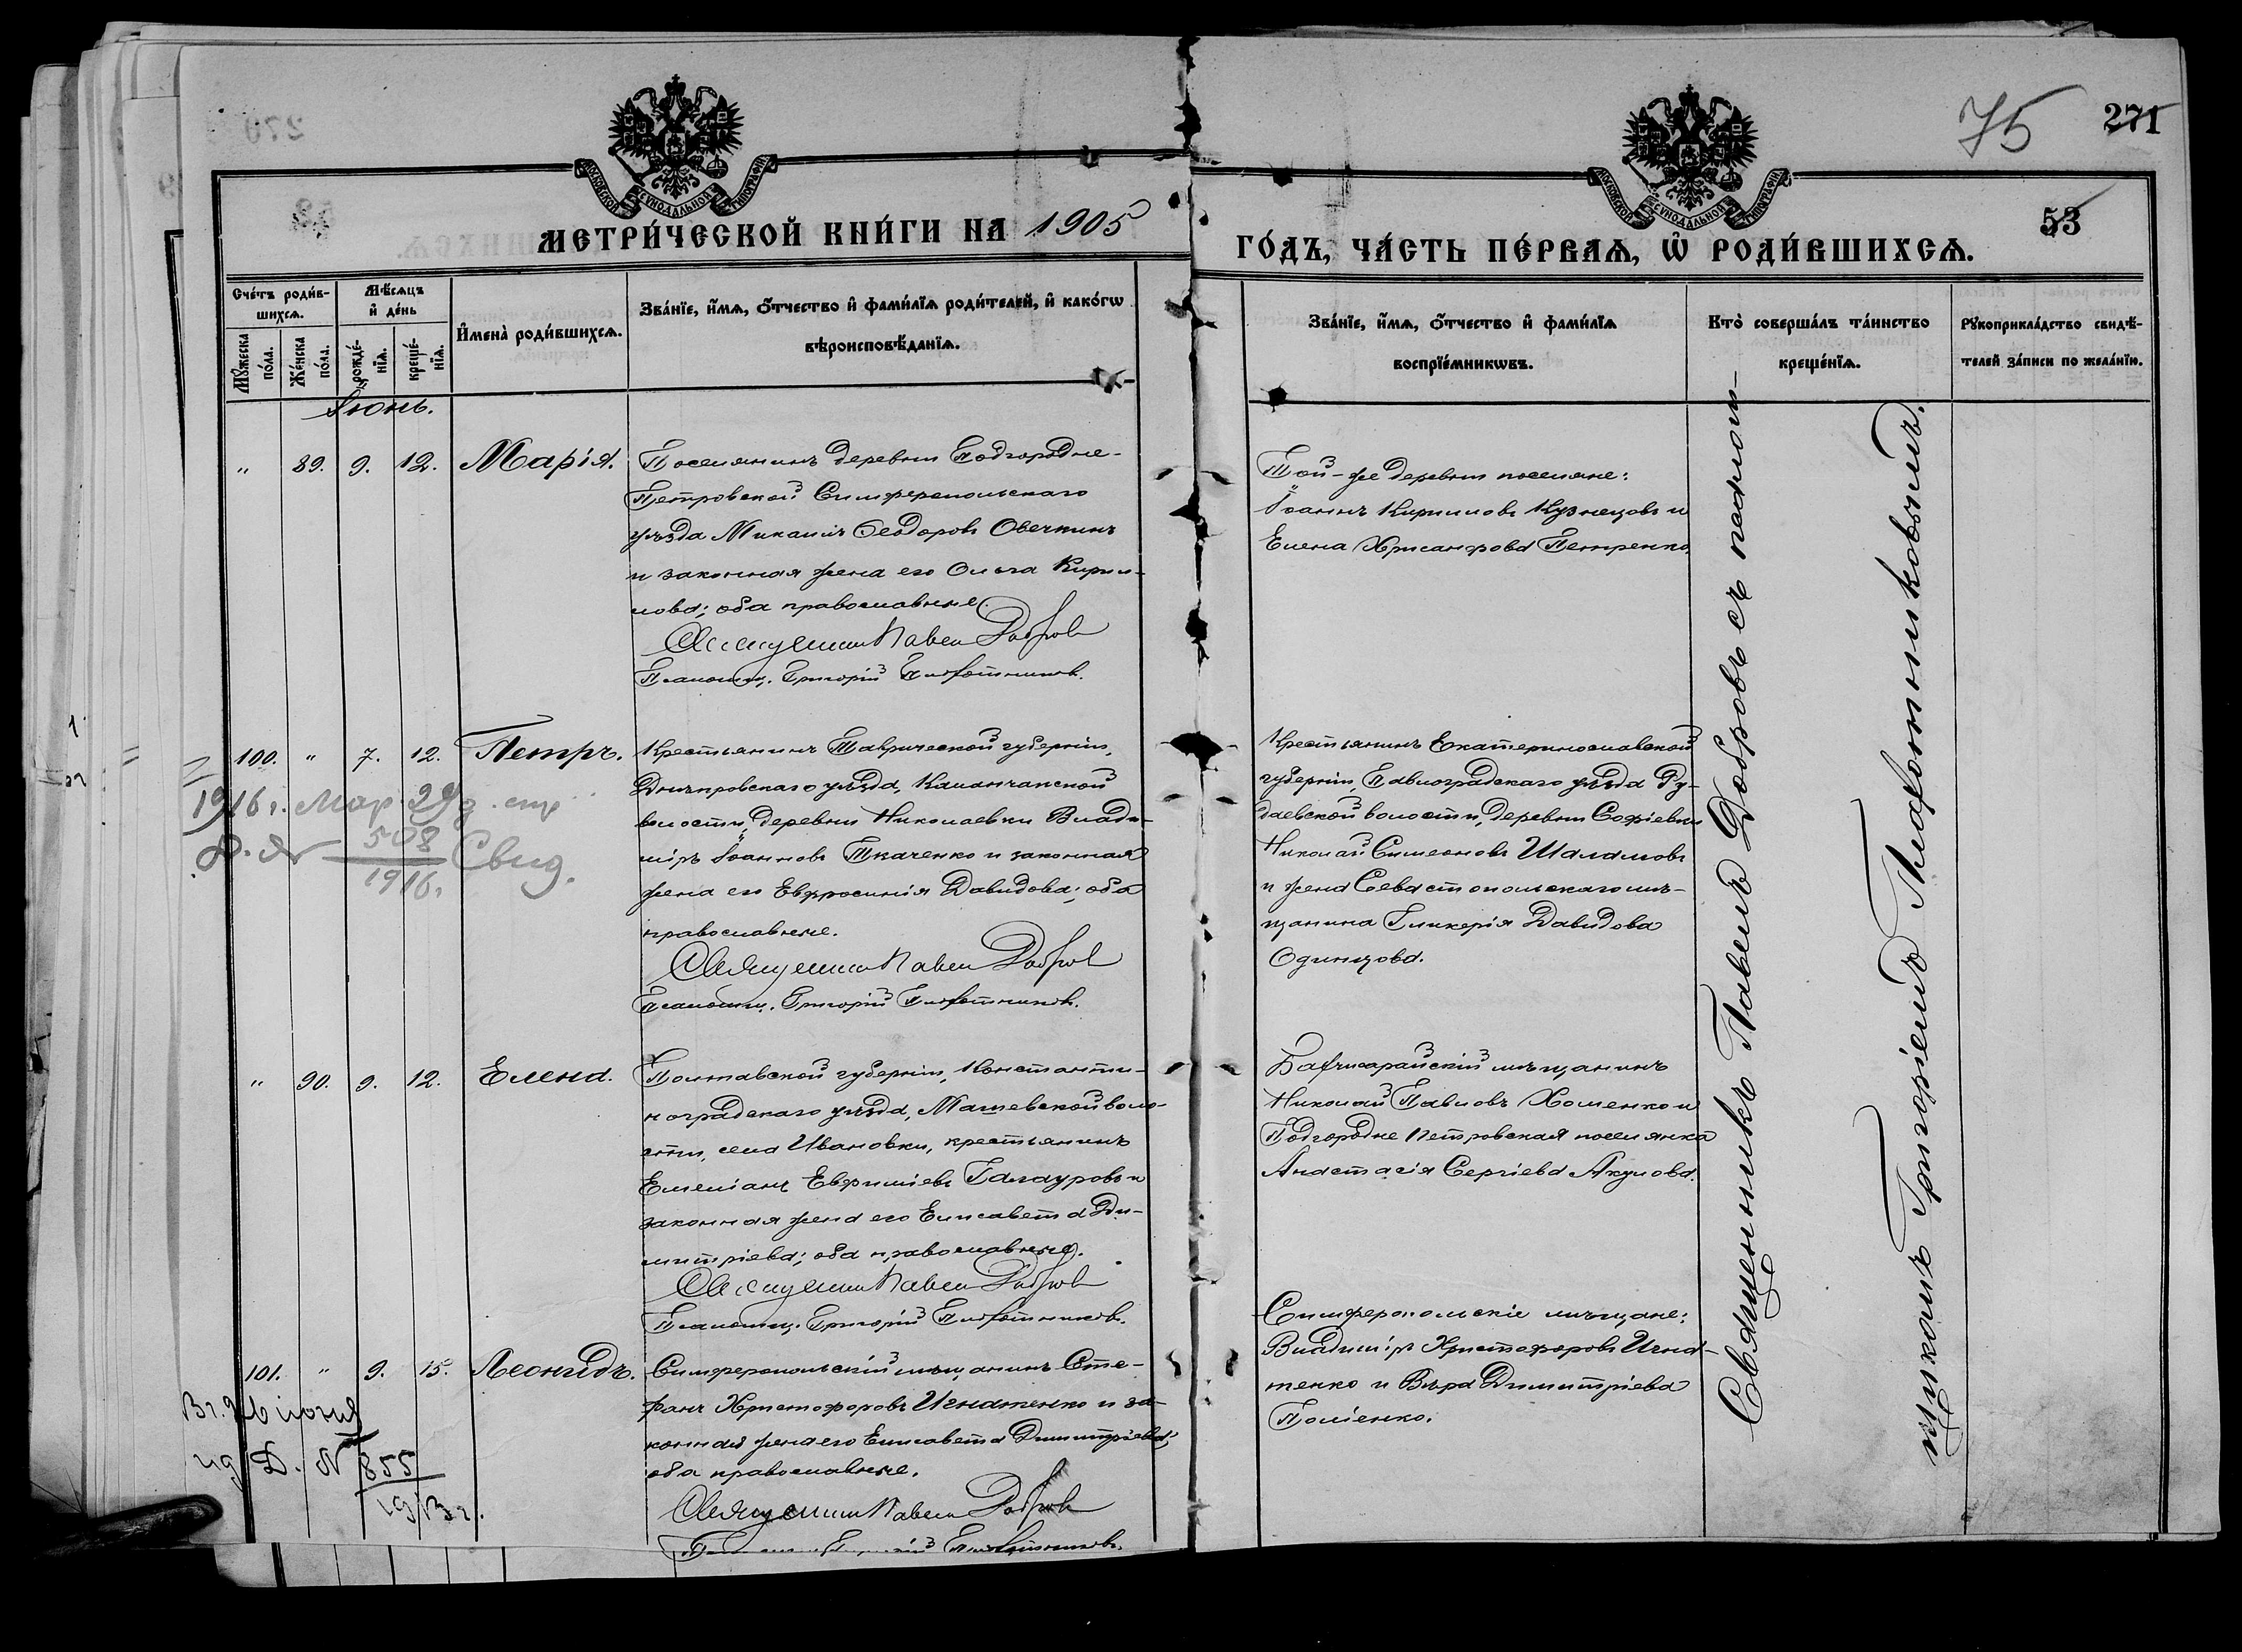 75
271
МОСКОВСКОЙ СѴНОДАЛЬНОЙ ТИПОГРАФІИ
МОСКОВСКОЙ СѴНОДАЛЬНОЙ ТИПОГРАФІИ
53
МЕТРИ́ЧЕСКОЙ КНИ́ГИ НА 1905
ГО́ДЪ, ЧА́СТЬ ПЕ́РВАѦ, Ѽ РОДИ́ВШИХСѦ.
Сче́тъ роди́в-
шихсѧ.
Мꙋжеска по́ла.
Же́нска по́ла.
Мѣ́сѧцъ
и҆ де́нь
рожде́-
нїѧ.
креще́-
нїѧ.
И҆мена̀ роди́вшихсѧ.
Зва́нїе, и҆́мѧ, ѻ҆́тчество и҆ фами́лїѧ роди́телей, и҆ како́гѡ
вѣроисповѣ́данїѧ.
Зва́нїе, и҆́мѧ, ѻ҆́тчество и҆ фами́лїѧ
воспрїе́мникѡвъ.
Кто̀ соверша́лъ та́инство
креще́нїѧ.
Рꙋкоприкла́дство свидѣ́-
телей за́писи по жела́нїю.
Іюнь.
„ 89. 9. 12. Марія.
Поселянинъ деревни Подгородне-
Петровской Симферопольскаго
уѣзда Михаилъ Ѳеодоровъ Овечкинъ
и законная жена его Ольга Кирил-
лова; оба православные.
Священникъ Павелъ Добровъ
Псаломщ. Григорій Плотниковъ.
Той-же деревни поселяне:
Іоаннъ Кирилловъ Кузнецовъ и
Елена Хрисанфова Петренко.
100. „ 7. 12. Петръ.
1916 г. Мар. 29 д.
д. № 508 Свид.
1916 г.
Крестьянинъ Таврической губерніи,
Днѣпровскаго уѣзда, Каланчакской
волости, деревни Николаевки Влади-
міръ Іоанновъ Ткаченко и законная
жена его Евфросинія Давидова; оба
православные.
Священникъ Павелъ Добровъ
Псаломщ. Григорій Плотниковъ.
Крестьянинъ Екатеринославской
губерніи, Павлоградскаго уѣзда Ру-
даевской волости, деревни Софіевки
Николай Симеоновъ Шаламовъ
и жена Севастопольскаго мѣ-
щанина Гликерія Давидова
Одинцова.
„ 90. 9. 12. Елена.
Полтавской губерніи, Константи-
ноградскаго уѣзда, Машевской воло-
сти, села Ивановки, крестьянинъ
Емеліанъ Евфиміевъ Галауровъ и
законная жена его Елисавета Ди-
митріева; оба православные.
Священникъ Павелъ Добровъ
Псаломщ. Григорій Плотниковъ.
Бахчисарайскій мѣщанинъ
Николай Павловъ Хоменко и
Подгородне Петровская поселянка
Анастасія Сергіева Акулова.
101. „ 9. 15. Леонидъ.
26 іюня
Д. № 855
1913 г.
Симферопольскій мѣщанинъ Сте-
фанъ Христофоровъ Игнатенко и за-
конная жена его Елисавета Димитріева;
оба православные.
Священникъ Павелъ Добровъ
Псаломщ. Григорій Плотниковъ.
Симферопольскіе мѣщане:
Владиміръ Христофоровъ Игна-
тенко и Вѣра Димитріева
Поліенко.
Священникъ Павелъ Добровъ съ псалом-
щикомъ Григоріемъ Плотниковымъ.